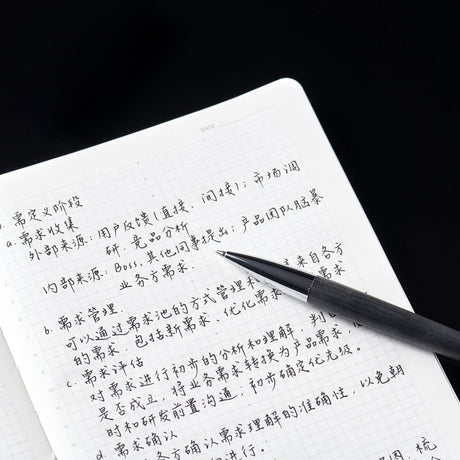 DATE
需定义阶段
a. 需求收集
外部来源：用户反馈(直接、间接)；市场调
研、竞品分析
内部来源：Boss、其他同事提出；产品团队脑暴
业务方需求
b. 需求管理
可以通过需求池的方式管理 来自各方
的需求，包括新需求、优化需求 需求
c. 需求评估
对需求进行初步的分析和理解，判
是否成立，将业务需求转换为产品需求，
时和研发前置沟通，初步确定优先级。
d. 需求确认
各方确认需求理解的准确性，以免朝
进行。
图，梳